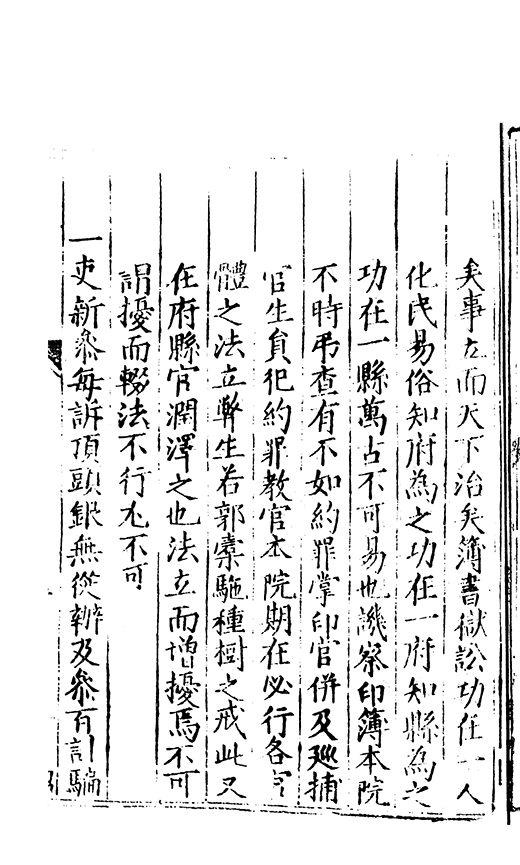 矣事立而天下治矣簿書獄訟功在一人
化民易俗知府為之功在一府知縣為之
功在一縣萬占不可易也譏察印簿本院
不時弔查有不如約罪掌印官併及廵捕
官生員犯約罪教官本院期在必行各官
體之法立弊生若郭橐駞種樹之戒此又
在府縣官潤澤之也法立而增擾焉不可
謂擾而輟法不行尤不可
一吏新叅每訴頂頭銀無從辦及叅有訓騙